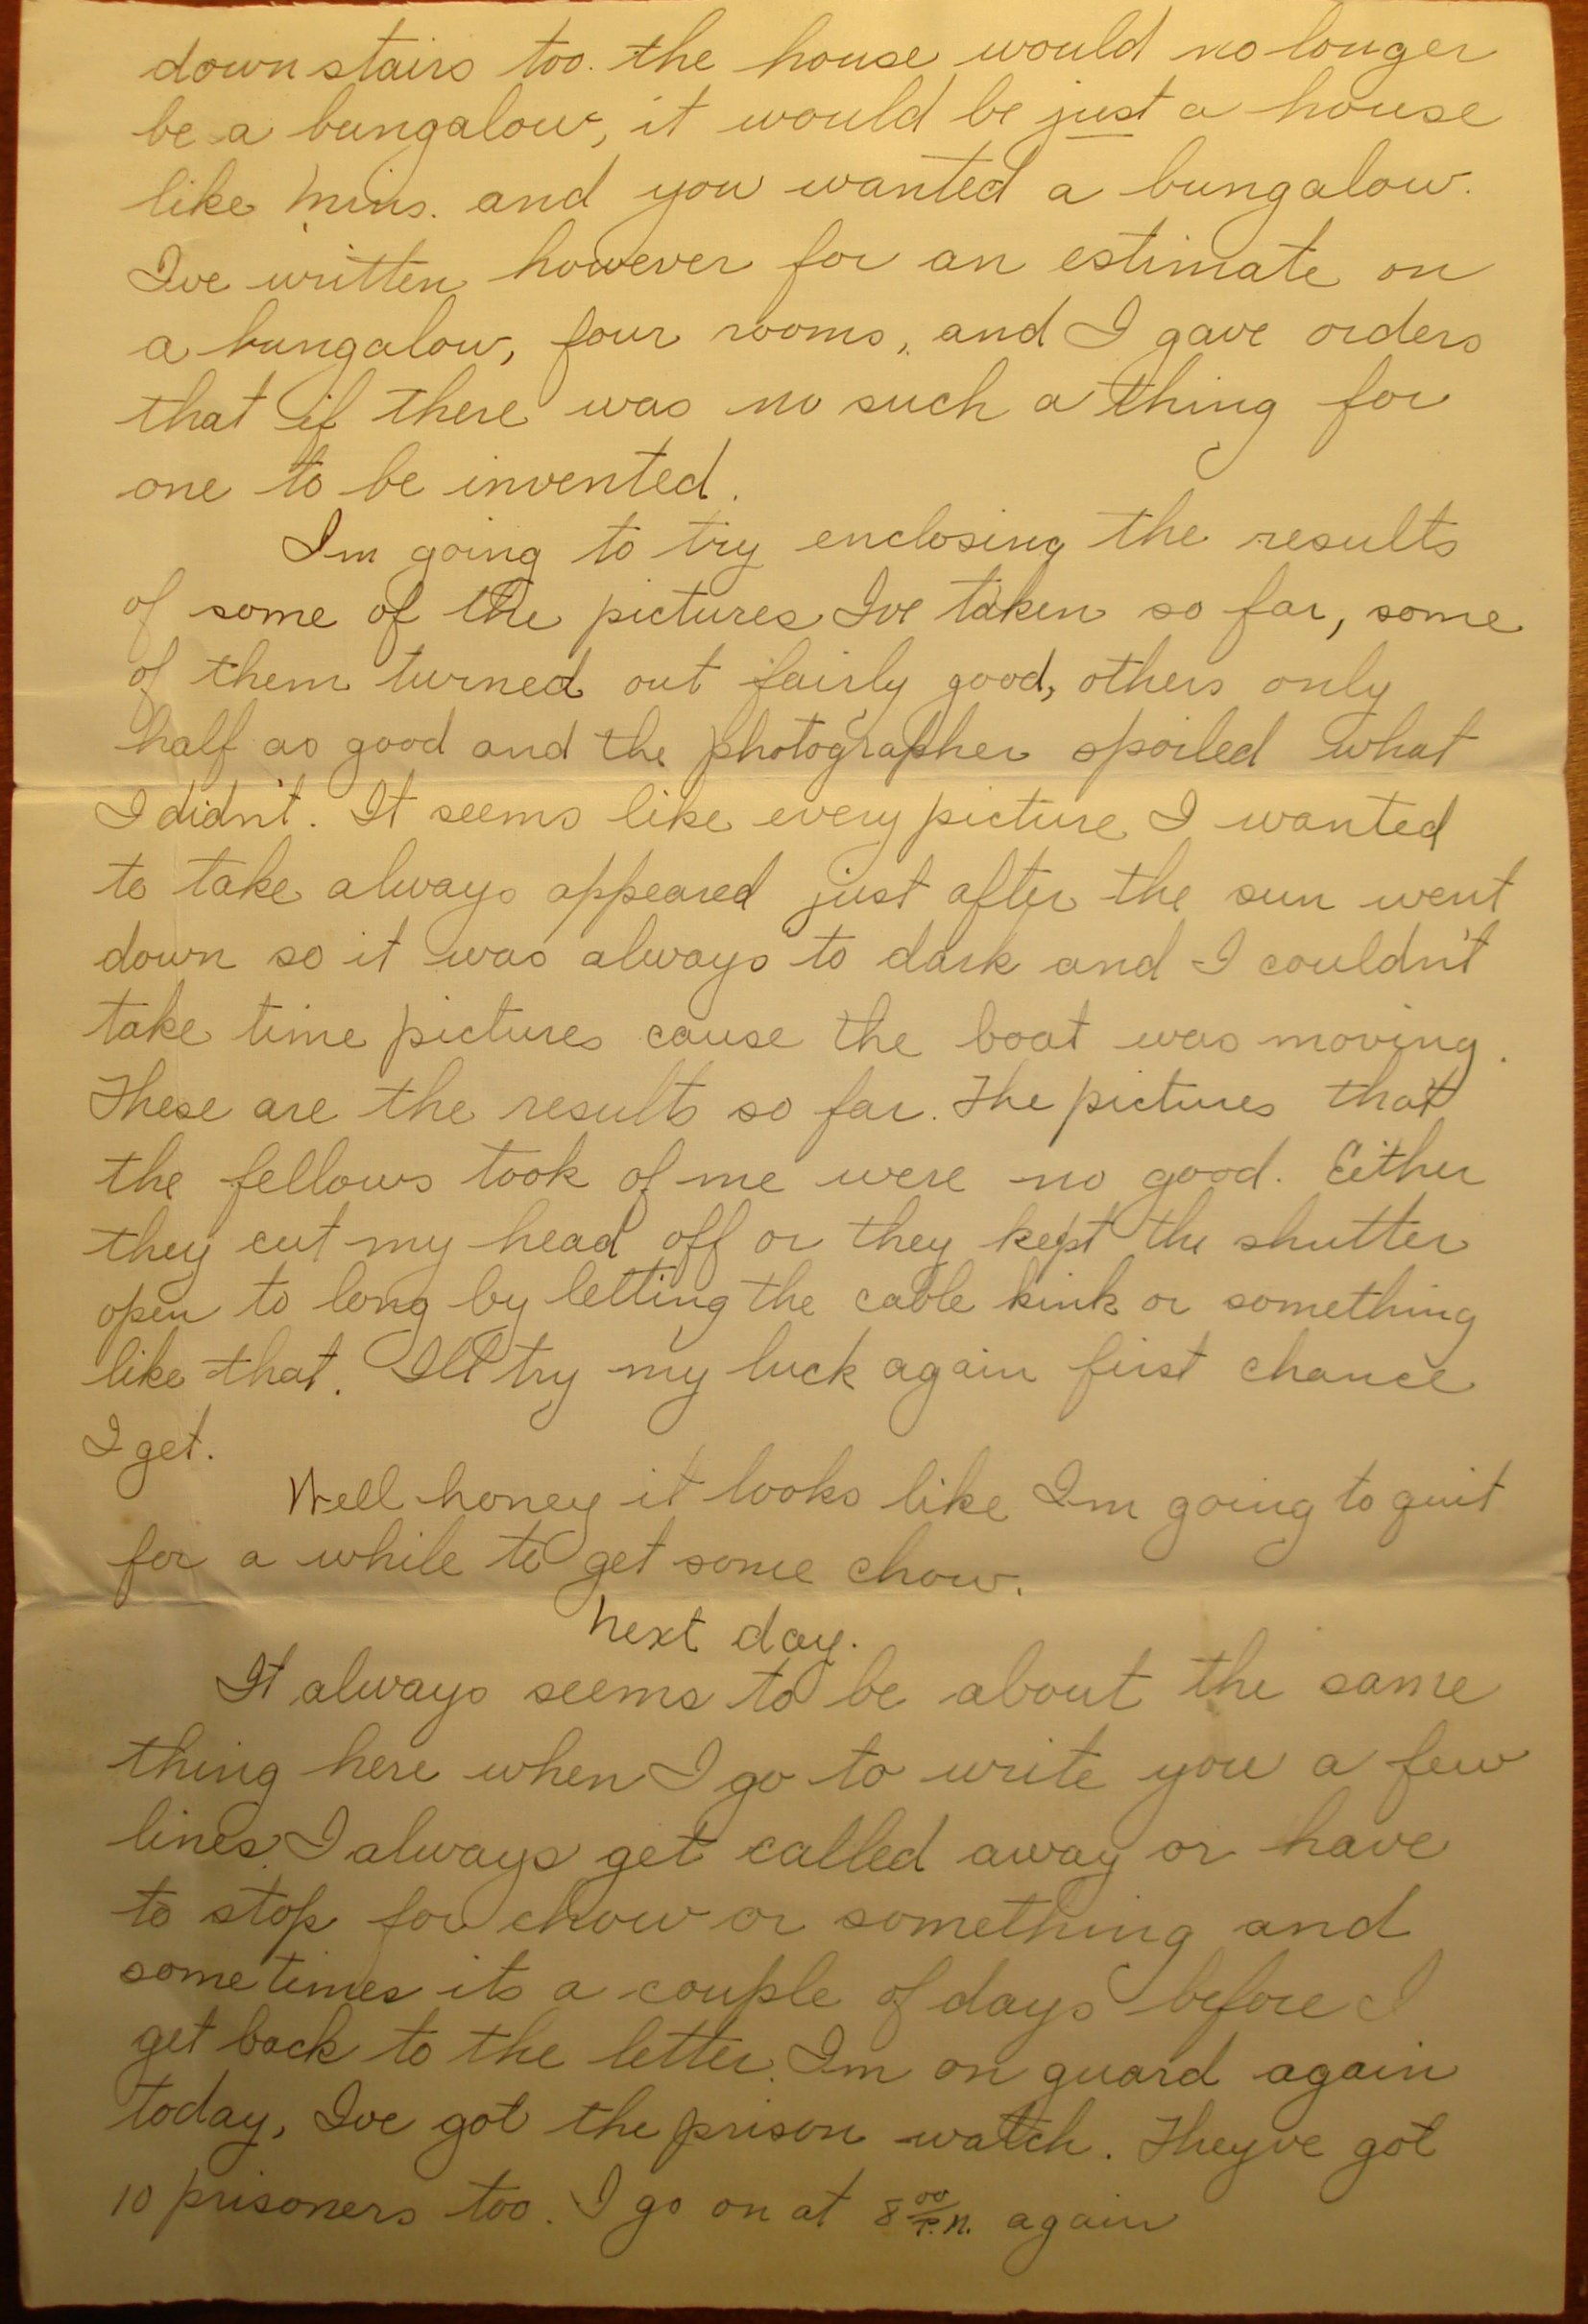 down stairs too. the house would no longer
be a bungalow, it would be just a house
like mins. and you wanted a bungalow.
Ive written however for an estimate on
a bungalow, four rooms, and I gave orders
that if there was no such a thing for
one to be invented.
Im going to try enclosing the results
of some of the pictures Ive taken so far, some
of them turned out fairly good, others only
half as good and the photographer spoiled what
I didn't. It seems like every picture I wanted
to take always appeared just after the sun went
down so it was always to dark and I couldn't
take time pictures cause the boat was moving.
These are the results so far. The pictures that
the fellows took of me were no good. Either
they cut my head off or they kept the shutter
open to long by letting the cable kink or something
like that. Ill try my luck again first chance
I get.
Well honey it looks like Im going to quit
for a while to get some chow.
Next day.
It always seems to be about the same
thing here when I go to write you a few
lines I always get called away or have
to stop for chow or something and
sometimes its a couple of days before I
get back to the letter. Im on guard again
today, Ive got the prison watch. Theyve got
10 prisoners too. I go on at 8 00 P.M. again